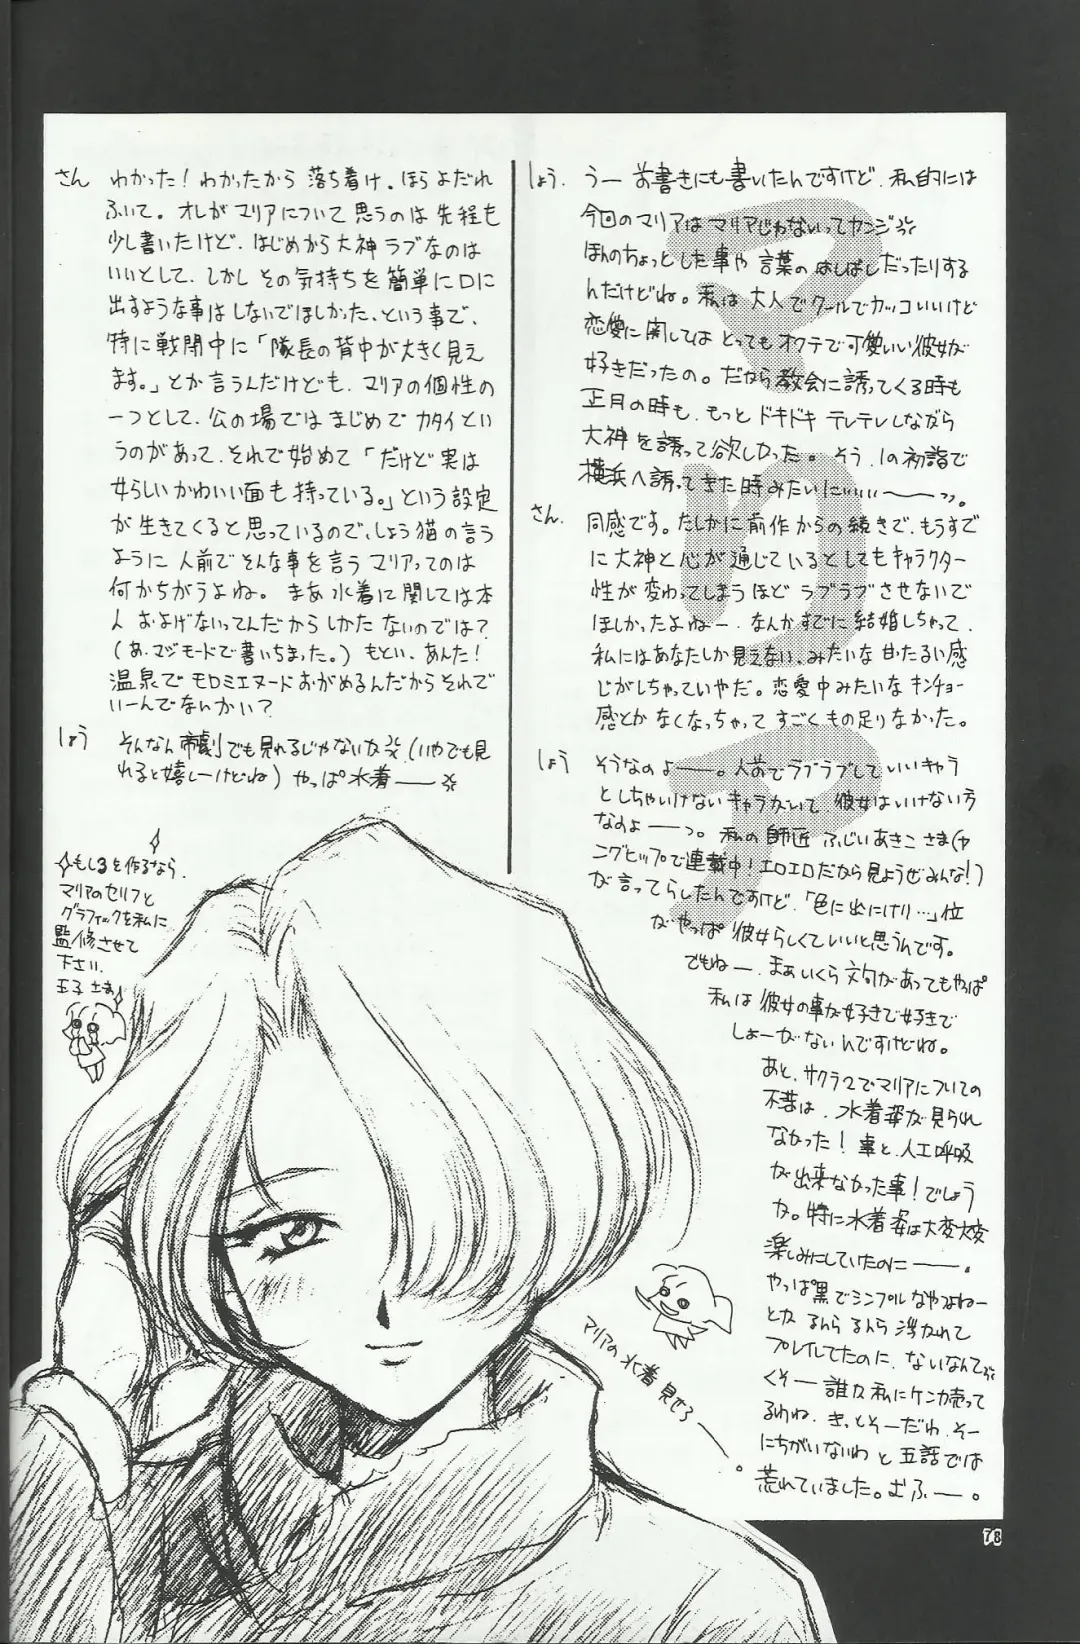 しょう. うー お書きにも書いたんですけど、私的には
今回のマリアはマリアじゃないってカンジ
ほんのちょっとした事や 言葉の はしばしだったりする
んだけどね。私は 大人でクールでカッコいいけど
恋愛に関しては とってもオクテで可愛いい彼女が
好きだったの。だから教会に誘ってくる時も
正月の時も、もっと ドキドキ テレテレしながら
大神を誘って欲しかった。そう、1の初詣で
横浜へ誘ってきた時みたいにいいいい〜〜っ。
さん. 同感です。たしかに前作からの続きで、もうすで
に大神と心が通じているとしてもキャラクター
性が変わってしまうほど ラブラブさせないで
ほしかったよねー、なんかすでに結婚しちゃって、
私にはあなたしか見えない、みたいな甘たるい感
じがしちゃっていやだ。恋愛中みたいなキンチョー
感とかなくなっちゃって すごくもの足りなかった。
しょう そうなのよー。人前でラブラブしていいキャラ
としちゃいけないキャラがいて、彼女はいけない方
なのよーっ。私の師匠 ふじいあきこさま(ヤ
ングヒップで連載中!エロエロだから見ようぜみんな!)
が言ってらしたんですけど、「色に出にけり…」位
がやっぱ 彼女らしくていいと思うんです。
でもねー、まぁいくら文句があってもやっぱ
私は 彼女の事が好きで好きで
しょーがないんですけどね。
あと、サクラ2でマリアについての
不満は、水着姿が見られ
なかった!事と、人工呼吸
が出来なかった事!でしょう
か。特に水着姿は大変大変
楽しみにしていたのにー。
やっぱ黒でシンプルなやつよねー
とか るんら るんら 浮かれて
プレイしてたのに、ないなんて
くそー 誰か私にケンカ売って
るわね、きっとそーだわ、そー
にちがいないわと 五話では
荒れていました。むふー。
さん わかった!わかったから 落ち着け。ほらよだれ
ふいて。オレがマリアについて思うのは 先程も
少し書いたけど、はじめから大神ラブなのは
いいとして、しかし その気持ちを簡単に口に
出すような事はしないでほしかった、という事で、
特に戦闘中に「隊長の背中が大きく見え
ます。」とか言うんだけども、マリアの個性の
一つとして、公の場では まじめでカタイとい
うのがあって、それで始めて「だけど実は
女らしいかわいい面も持っている。」という設定
が生きてくると思っているので、しょう猫の言う
ように 人前でそんな事を言う マリアってのは
何かちがうよね。まあ水着に関しては本
人 およげないってんだから しかたないのでは?
(あ、マジモードで書いちまった。)もとい、あんた!
温泉でモロミエヌードおがめるんだからそれで
いーんでないかい?
しょう そんなん帝劇でも見れるじゃないか(いやでも見
れると嬉しーけどね) やっぱ水着ー
もし3を作るなら、
マリアのセリフと
グラフィックを私に
監修させて
下さい、
王子さま
マリアの水着見せろー。
マリア
78